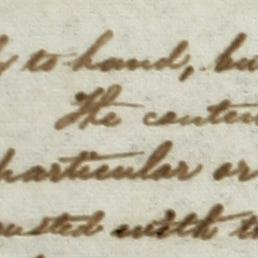 to hand, bu
The conten
particular or
usted with t